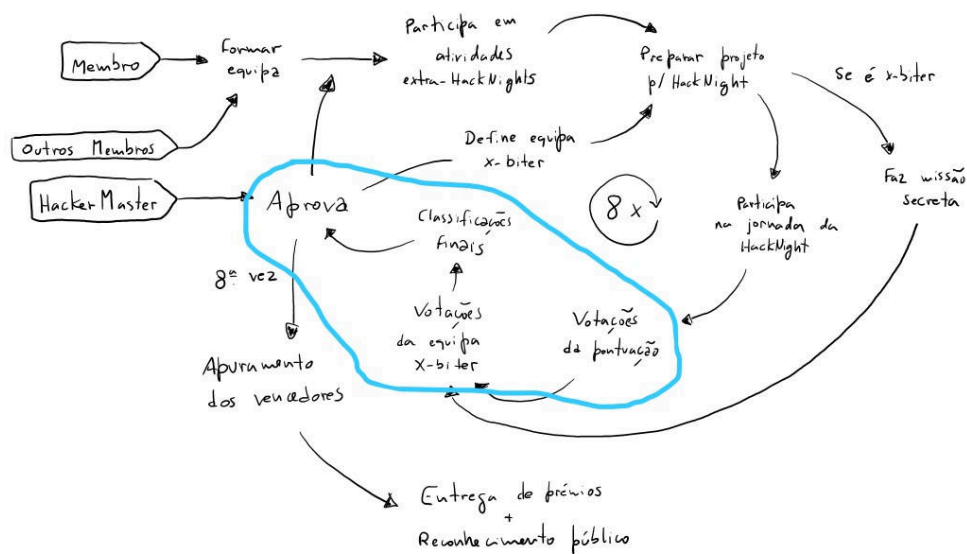 Membro
Formar
equipa
Participa em
atividades
extra-HackNights
Preparar projeto
p/ HackNight
Se é x-biter
Outros Membros
Define equipa
x-biter
HackerMaster
Aprova
Classificações
finais
8x
Participa
na jornada da
HackNight
Faz missão
secreta
8ª vez
Votações
da equipa
X-biter
Votações
da pontuação
Apuramento
dos vencedores
Entrega de prémios
+
Reconhecimento público